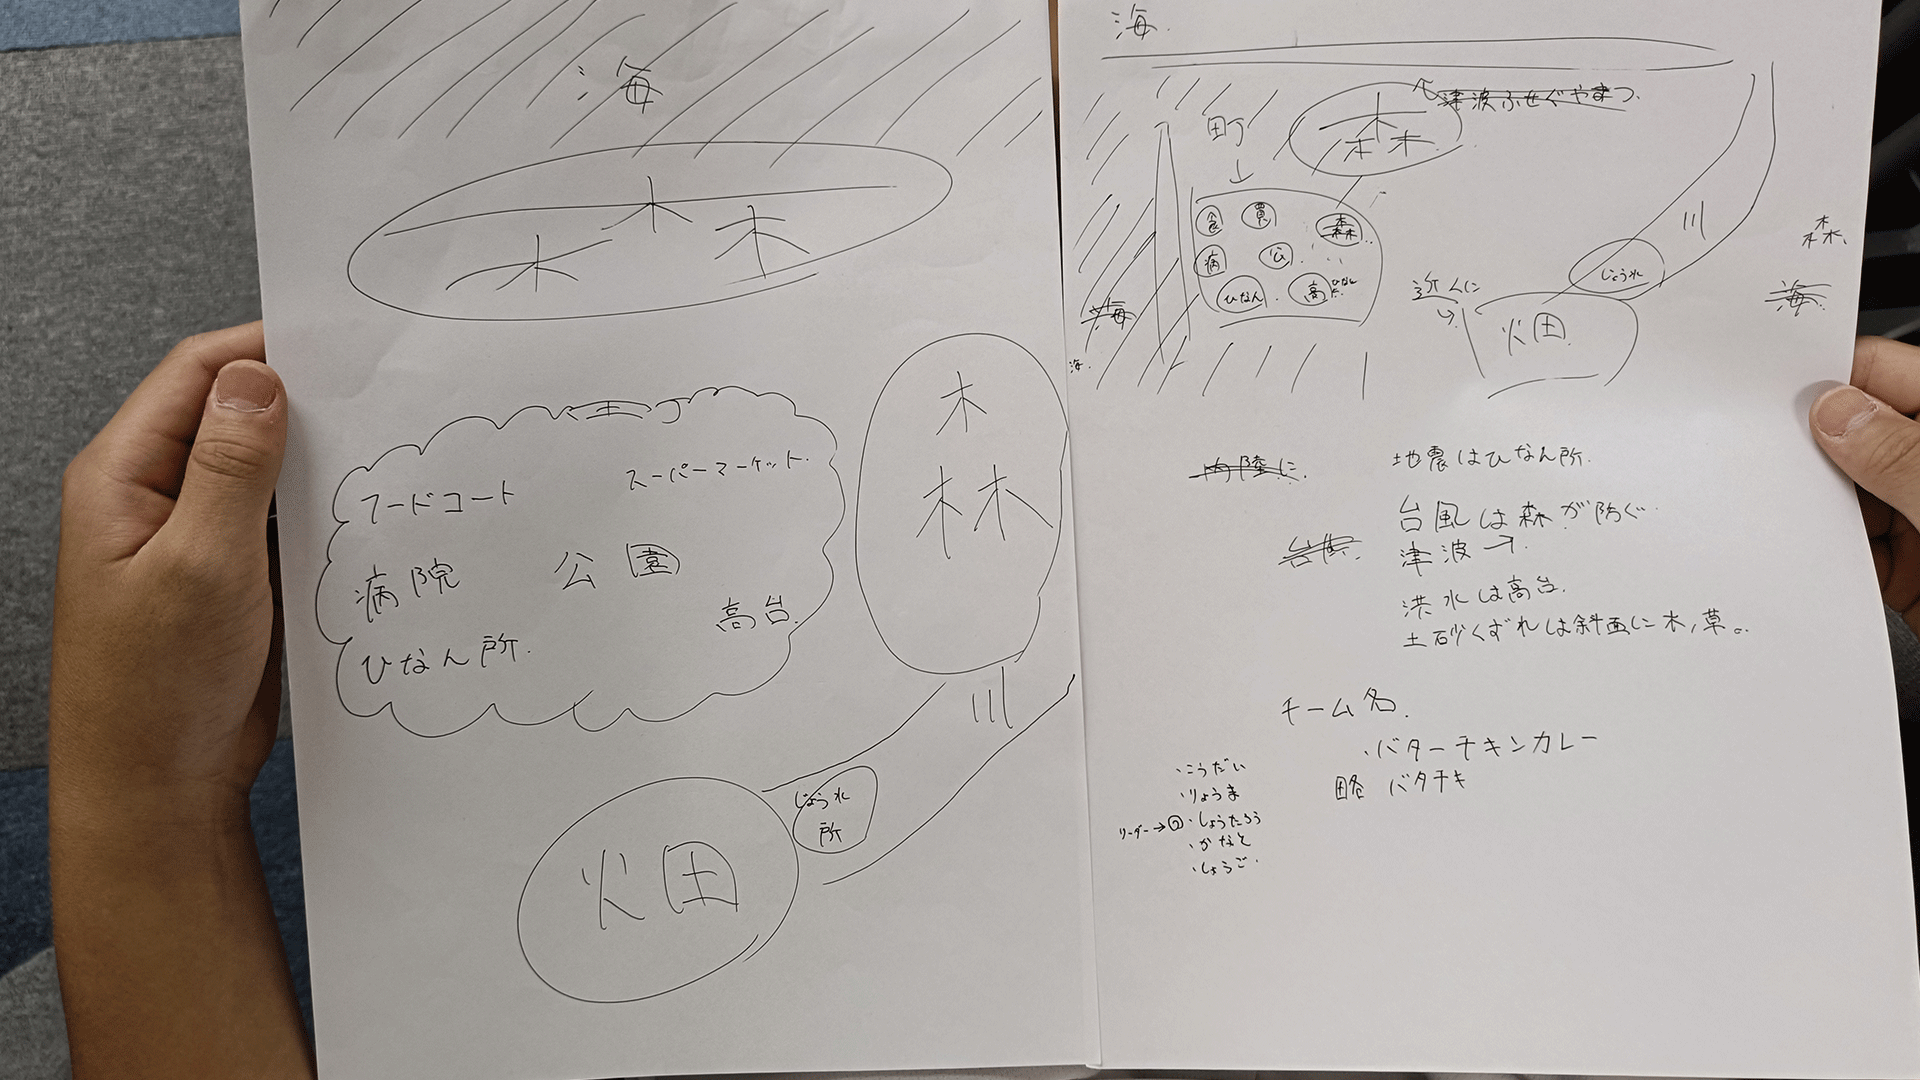 海
木 木 木
町
フードコート
スーパーマーケット
病院
公園
高台
ひなん所
森
川
じょう水
所
畑
海
津波ふせぐやまつ
町
森
食
買
森
病
公
ひなん
高
海
海
川
じょう水
近くに
畑
森
海
内陸に
地震はひなん所
台風は森が防ぐ
津波→
洪水は高台
土砂くずれは斜面に木、草。
チーム名
・バターチキンカレー
略 バタチキ
・こうだい
・りょうま
リーダー→ ・しょうたろう
・かなと
・しょうご